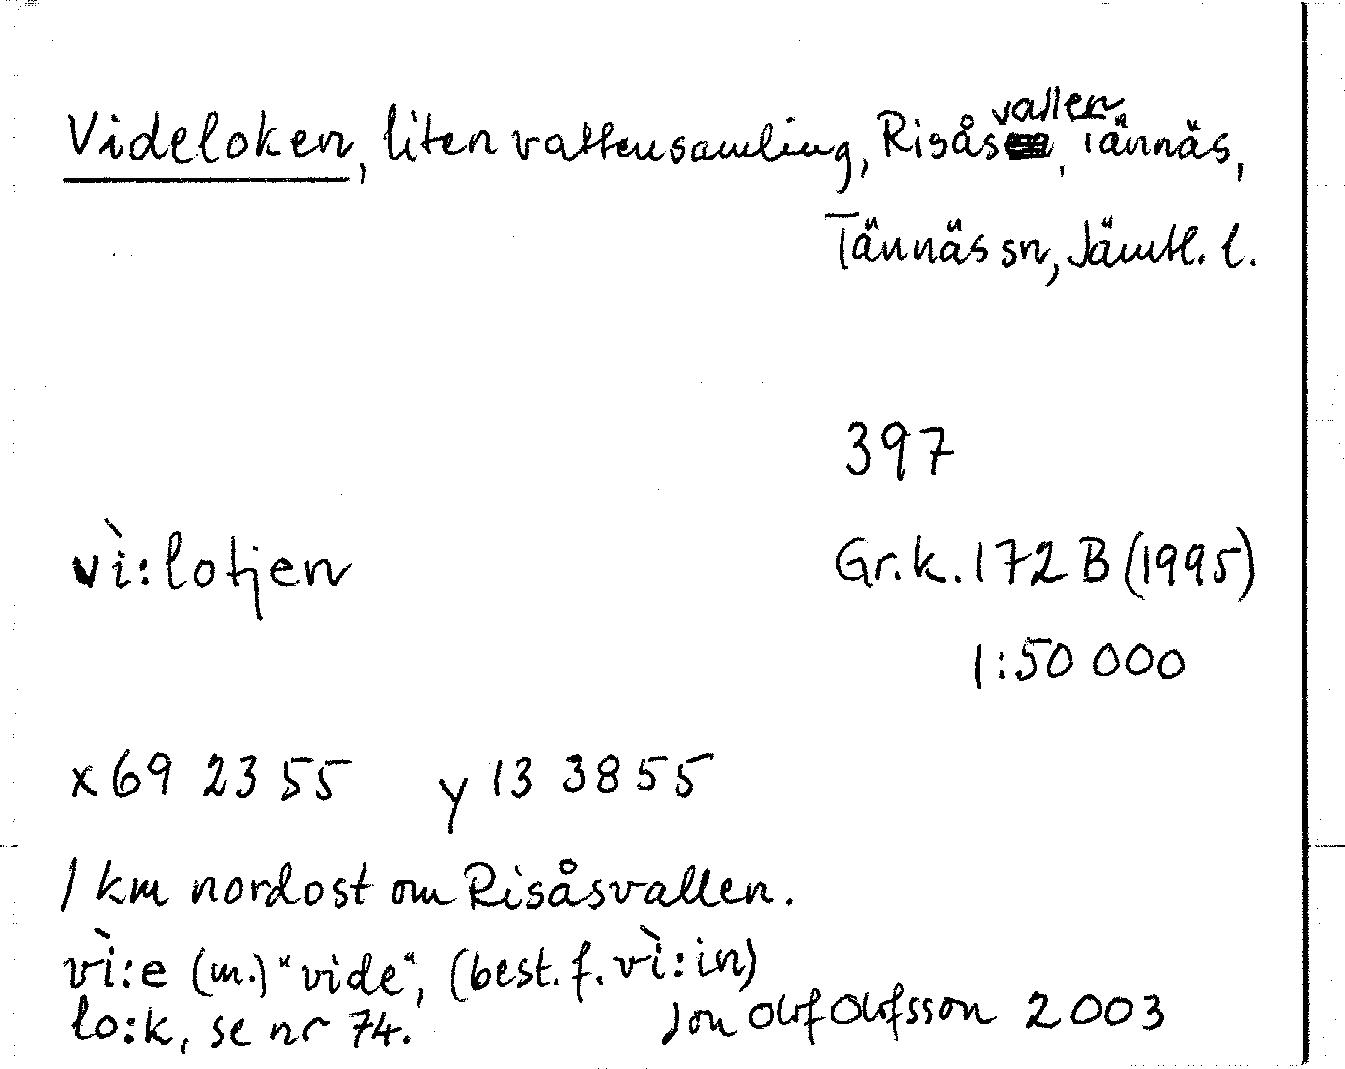 Videloken, liten vattensamling, Risåsvallen, Tännäs,
Tännäs sn, Jämtl. l.
397
vì:lotjen Gr.k. 172 B (1995)
1:50 000
x 69 23 55 y 13 38 55
1 km nordost om Risåsvallen.
vì:e (m.) "vide", (best. f. vì:in)
lo:k, se nr 74. Jon Olof Olofsson 2003